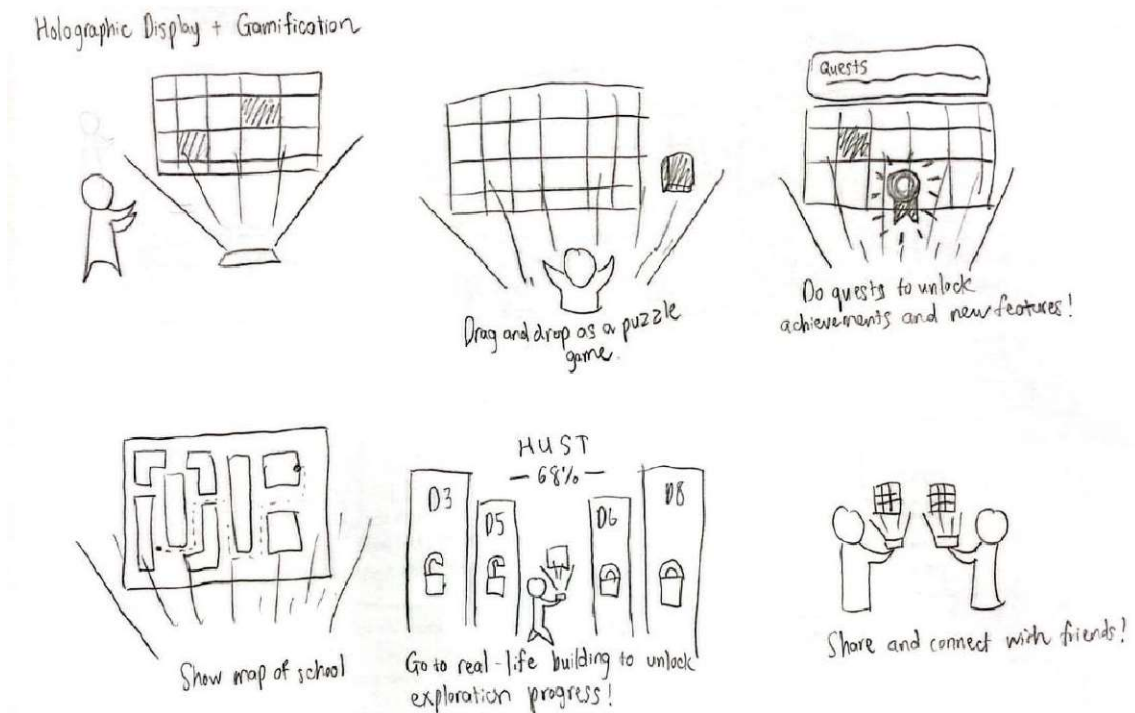 Holographic Display + Gamification
Quests
Drag and drop as a puzzle
game.
Do quests to unlock
achievements and new features!
Show map of school
HUST
— 68% —
D3
D5
D6
D8
Go to real-life building to unlock
exploration progress!
Share and connect with friends!